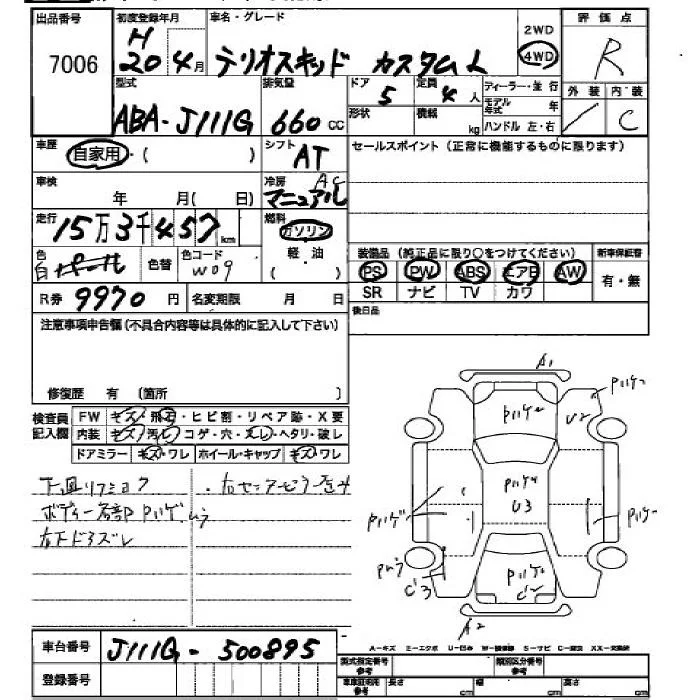 出品番号 初度登録年月 車名・グレード 2WD 評価点
7006 H 20年4月 テリオスキッド カスタムL 4WD R
型式 排気量 ドア 定員 ディーラー・並行 外装 内装
ABA-J111G 660cc 5 4人 モデル年式 年 / C
形状 積載 kg ハンドル 左・右
車歴 自家用・( ) シフト AT セールスポイント(正常に機能するものに限ります)
車検 年 月( 日) 冷房 AC マニュアル
走行 15万3千457km 燃料 ガソリン
色 白パール 色替 色コード W09 軽・油 ( )
装備品(純正品に限り○をつけてください) 新車保証書
PS PW ABS エアB AW 有・無
SR ナビ TV カワ
R券 9970円 名変期限 月 日
後日品
注意事項申告欄(不具合内容等は具体的に記入して下さい)
修復歴 有 (箇所 )
検査員記入欄 FW キズ・飛石・ヒビ割・リペア跡・X要
内装 キズ・汚レ・コゲ・穴・スレ・ヘタリ・破レ
ドアミラー キズ・ワレ ホイール・キャップ キズ・ワレ
下廻リフショク
ボディー各部Pハゲ、ムラ
右下ドアズレ
A1
Pハゲ
U2
Pハゲ
Pハゲ
U3
Pハゲ
Pハゲ
Pムラ
C3
Pハゲ
C2
A2
A-キズ ミ-エクボ U-凹み W-補修跡 S-サビ C-腐食 XX-交換済
車台番号 J111G-500895
登録番号
型式指定番号 参考 類別区分番号 参考
車庫証明用 参考 長さ cm 幅 cm 高さ cm